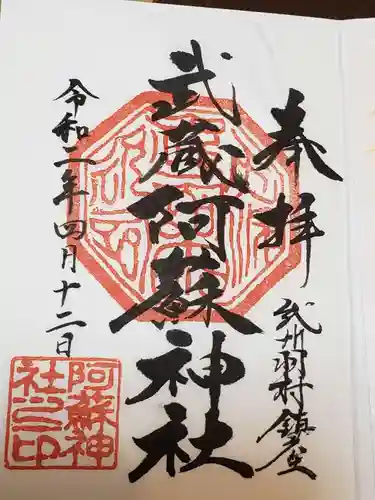 奉拝
武州羽村鎮座
武蔵阿蘇神社
令和二年四月十二日
阿蘇神社之印